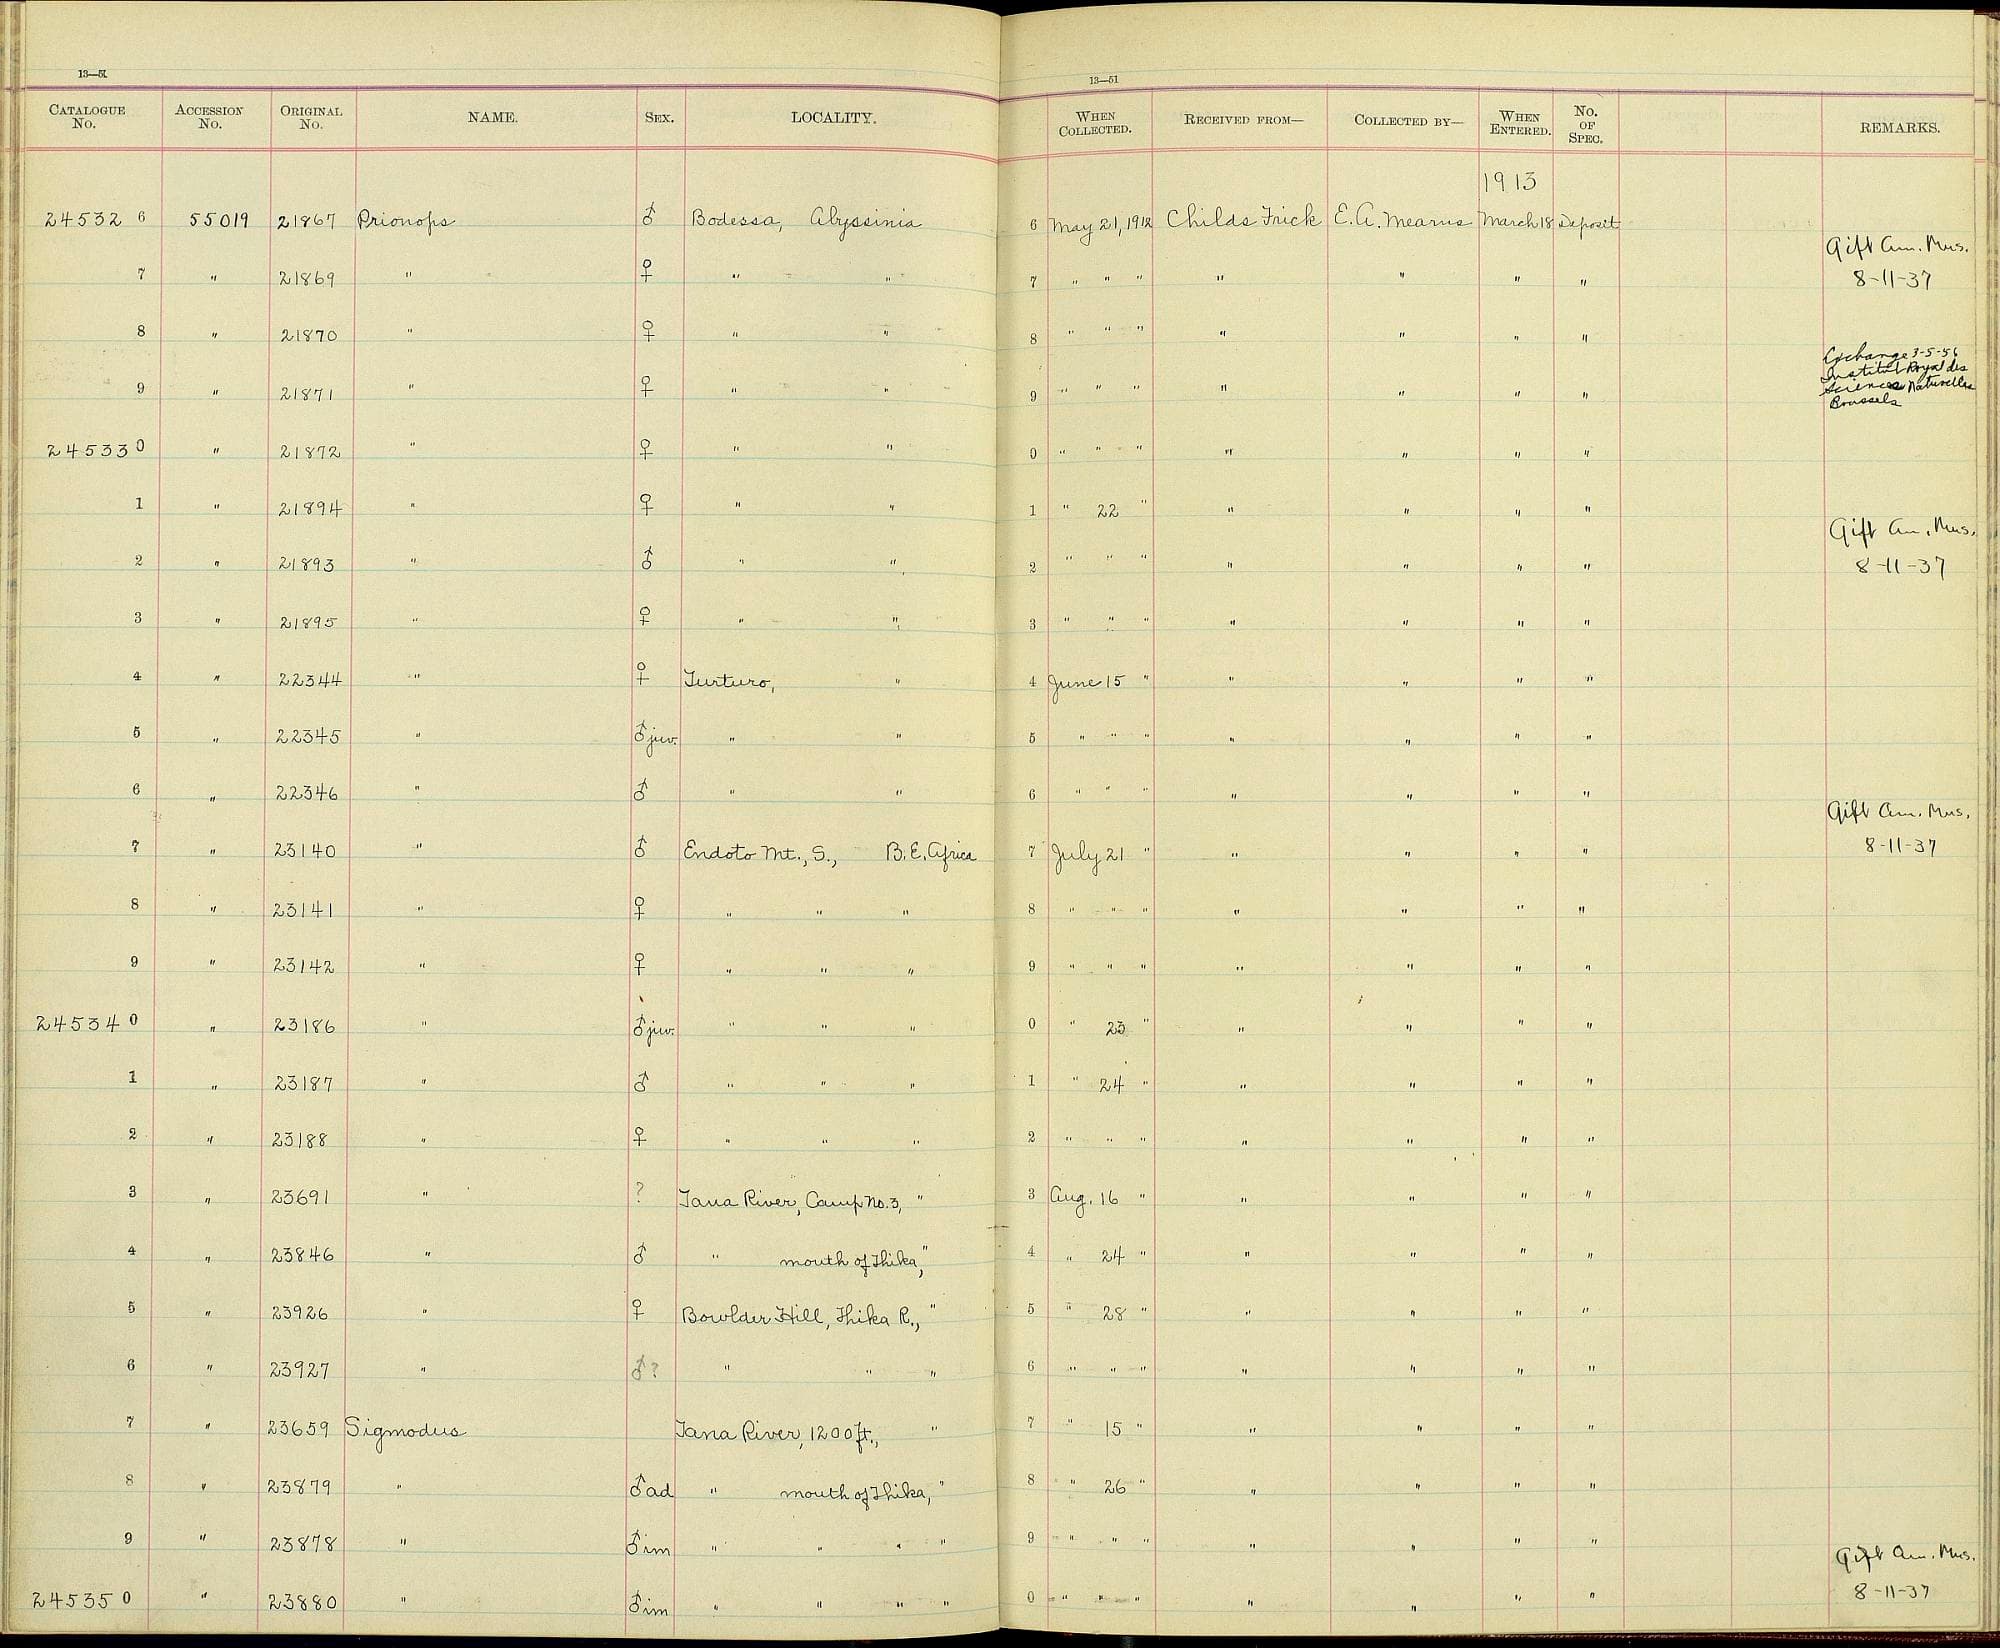 13—51
13—51
CATALOGUE No. ACCESSION No. ORIGINAL No. NAME. SEX. LOCALITY. WHEN COLLECTED. RECEIVED FROM— COLLECTED BY— WHEN ENTERED. No. OF SPEC. REMARKS.
1913
24532 6 55019 21867 Prionops ♂ Bodessa, Abyssinia 6 May 21, 1912 Childs Frick E.A. Mearns March 18 Deposit
Gift Am. Mus.
7 " 21869 " ♀ " " 7 " " " " " " " 8-11-37
8 " 21870 " ♀ " " 8 " " " " " " "
Exchange 3-5-56
Institut Royal des
Sciences Naturelles
Brussels
9 " 21871 " ♀ " " 9 " " " " " " "
24533 0 " 21872 " ♀ " " 0 " " " " " " "
1 " 21894 " ♀ " " 1 " 22 " " " " "
Gift Am. Mus.
2 " 21893 " ♂ " " 2 " " " " " " " 8-11-37
3 " 21895 " ♀ " " 3 " " " " " " "
4 " 22344 " ♀ Turturo, " 4 June 15 " " " " "
5 " 22345 " ♂ juv. " " 5 " " " " " " "
6 " 22346 " ♂ " " 6 " " " " " " "
Gift Am. Mus.
7 " 23140 " ♂ Endoto Mt., S., B.E. Africa 7 July 21 " " " " " 8-11-37
8 " 23141 " ♀ " " " 8 " " " " " " "
9 " 23142 " ♀ " " " 9 " " " " " " "
24534 0 " 23186 " ♂ juv. " " " 0 " 23 " " " " "
1 " 23187 " ♂ " " " 1 " 24 " " " " "
2 " 23188 " ♀ " " " 2 " " " " " " "
3 " 23691 " ? Tana River, Camp No. 3, " 3 Aug. 16 " " " " "
4 " 23846 " ♂ " mouth of Thika, " 4 " 24 " " " " "
5 " 23926 " ♀ Bowlder Hill, Thika R., " 5 " 28 " " " " "
6 " 23927 " ♂? " " " 6 " " " " " " "
7 " 23659 Sigmodus Tana River, 1200 ft., " 7 " 15 " " " " "
8 " 23879 " ♂ ad " mouth of Thika, " 8 " 26 " " " " "
9 " 23878 " ♂ im " " " " 9 " " " " " " "
Gift Am. Mus.
24535 0 " 23880 " ♂ im " " " " 0 " " " " " " " 8-11-37